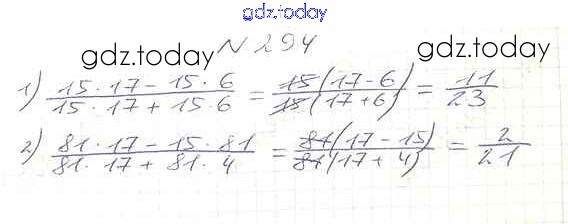 gdz.today
gdz.today N 294 gdz.today
1) \frac{15 \cdot 17 - 15 \cdot 6}{15 \cdot 17 + 15 \cdot 6} = \frac{15(17 - 6)}{15(17 + 6)} = \frac{11}{23}
2) \frac{81 \cdot 17 - 15 \cdot 81}{81 \cdot 17 + 81 \cdot 4} = \frac{81(17 - 15)}{81(17 + 4)} = \frac{2}{21}